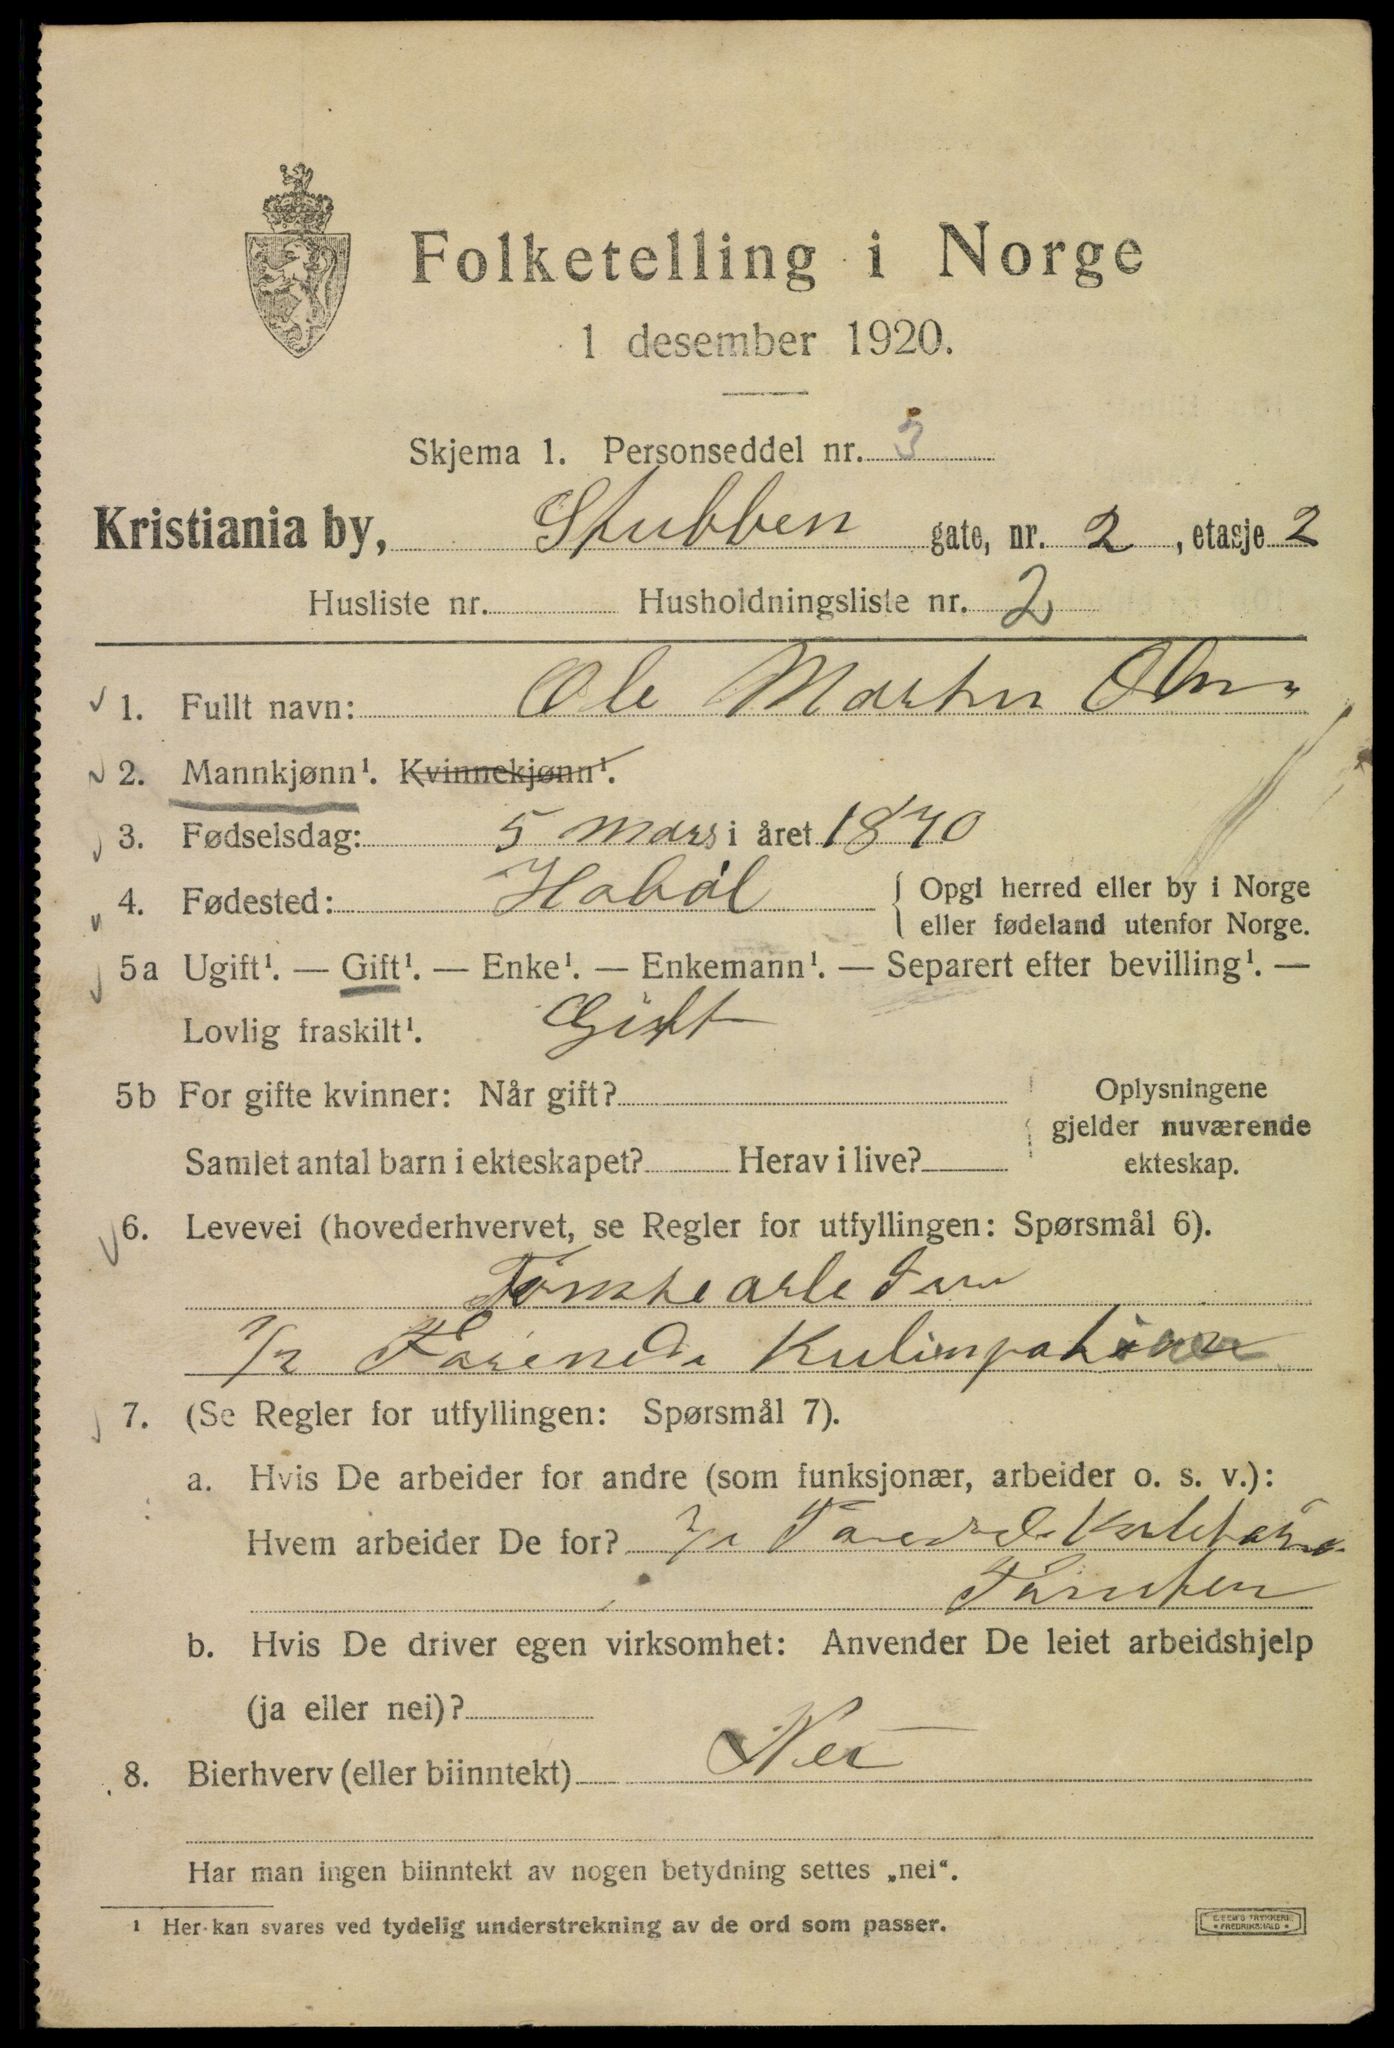 Folketelling i Norge
1 desember 1920.
Skjema 1. Personseddel nr. 3
Kristiania by, Stubben gate, nr. 2, etasje 2
Husliste nr. Husholdningsliste nr. 2
1. Fullt navn: Ole Martin Olsen
2. Mannkjønn¹. Kvinnekjønn¹.
3. Fødselsdag: 5 mars i året 1870
4. Fødested: Habøl { Opgi herred eller by i Norge
eller fødeland utenfor Norge.
5a Ugift¹. — Gift¹. — Enke¹. — Enkemann¹. — Separert efter bevilling¹. —
Lovlig fraskilt¹. Gift
5b For gifte kvinner: Når gift? Oplysningene
gjelder nuværende
Samlet antal barn i ekteskapet? Herav i live? ekteskap.
6. Levevei (hovederhvervet, se Regler for utfyllingen: Spørsmål 6).
7. (Se Regler for utfyllingen: Spørsmål 7).
a. Hvis De arbeider for andre (som funksjonær, arbeider o. s. v.):
Hvem arbeider De for?
b. Hvis De driver egen virksomhet: Anvender De leiet arbeidshjelp
(ja eller nei)?
8. Bierhverv (eller biinntekt) Nei
Har man ingen biinntekt av nogen betydning settes „nei“.
¹ Her kan svares ved tydelig understrekning av de ord som passer.
FREDRIKSHALD